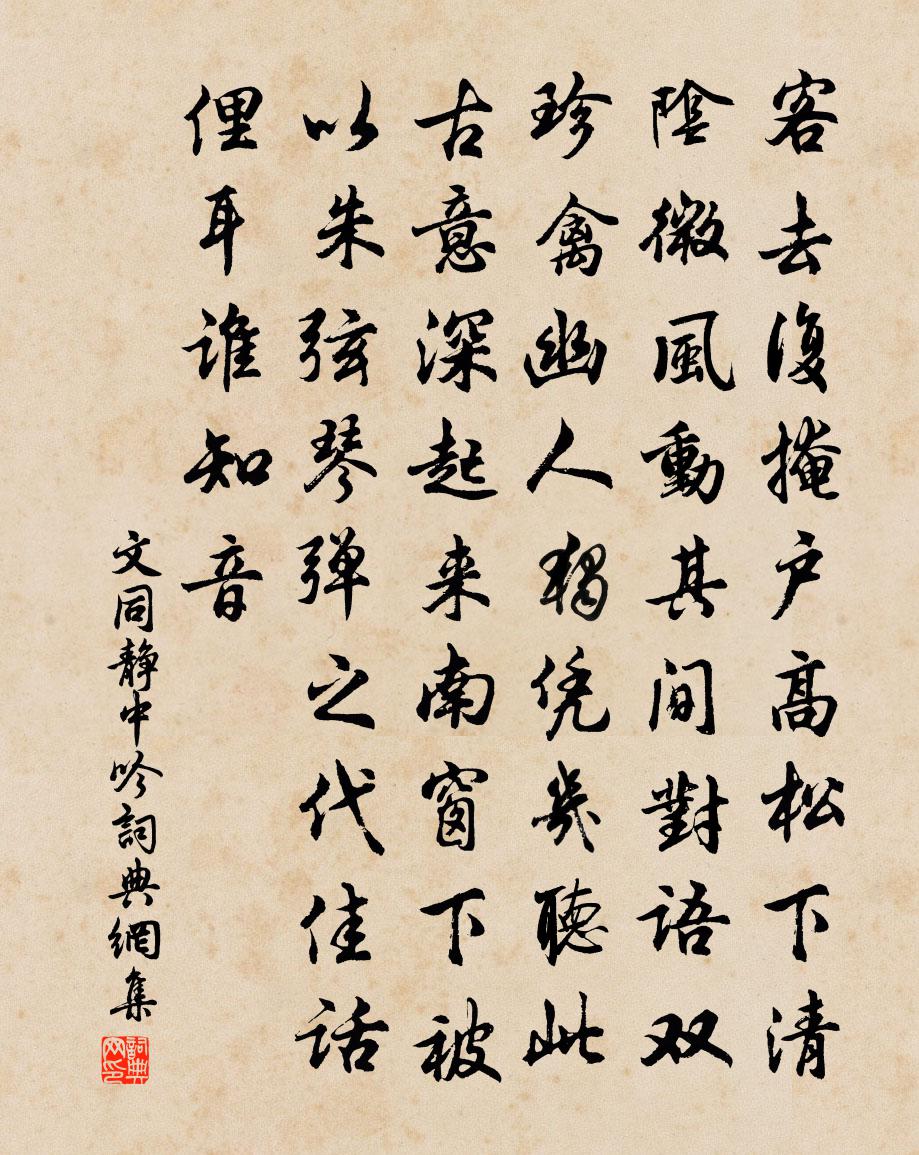 客去復掩户高松下清
陰微風動其间對语双
珍禽幽人獨凭几聽此
古意深起来南窗下被
以朱弦琴弹之代佳话
俚耳谁知音
文同静中吟詞典網集
詞典网印